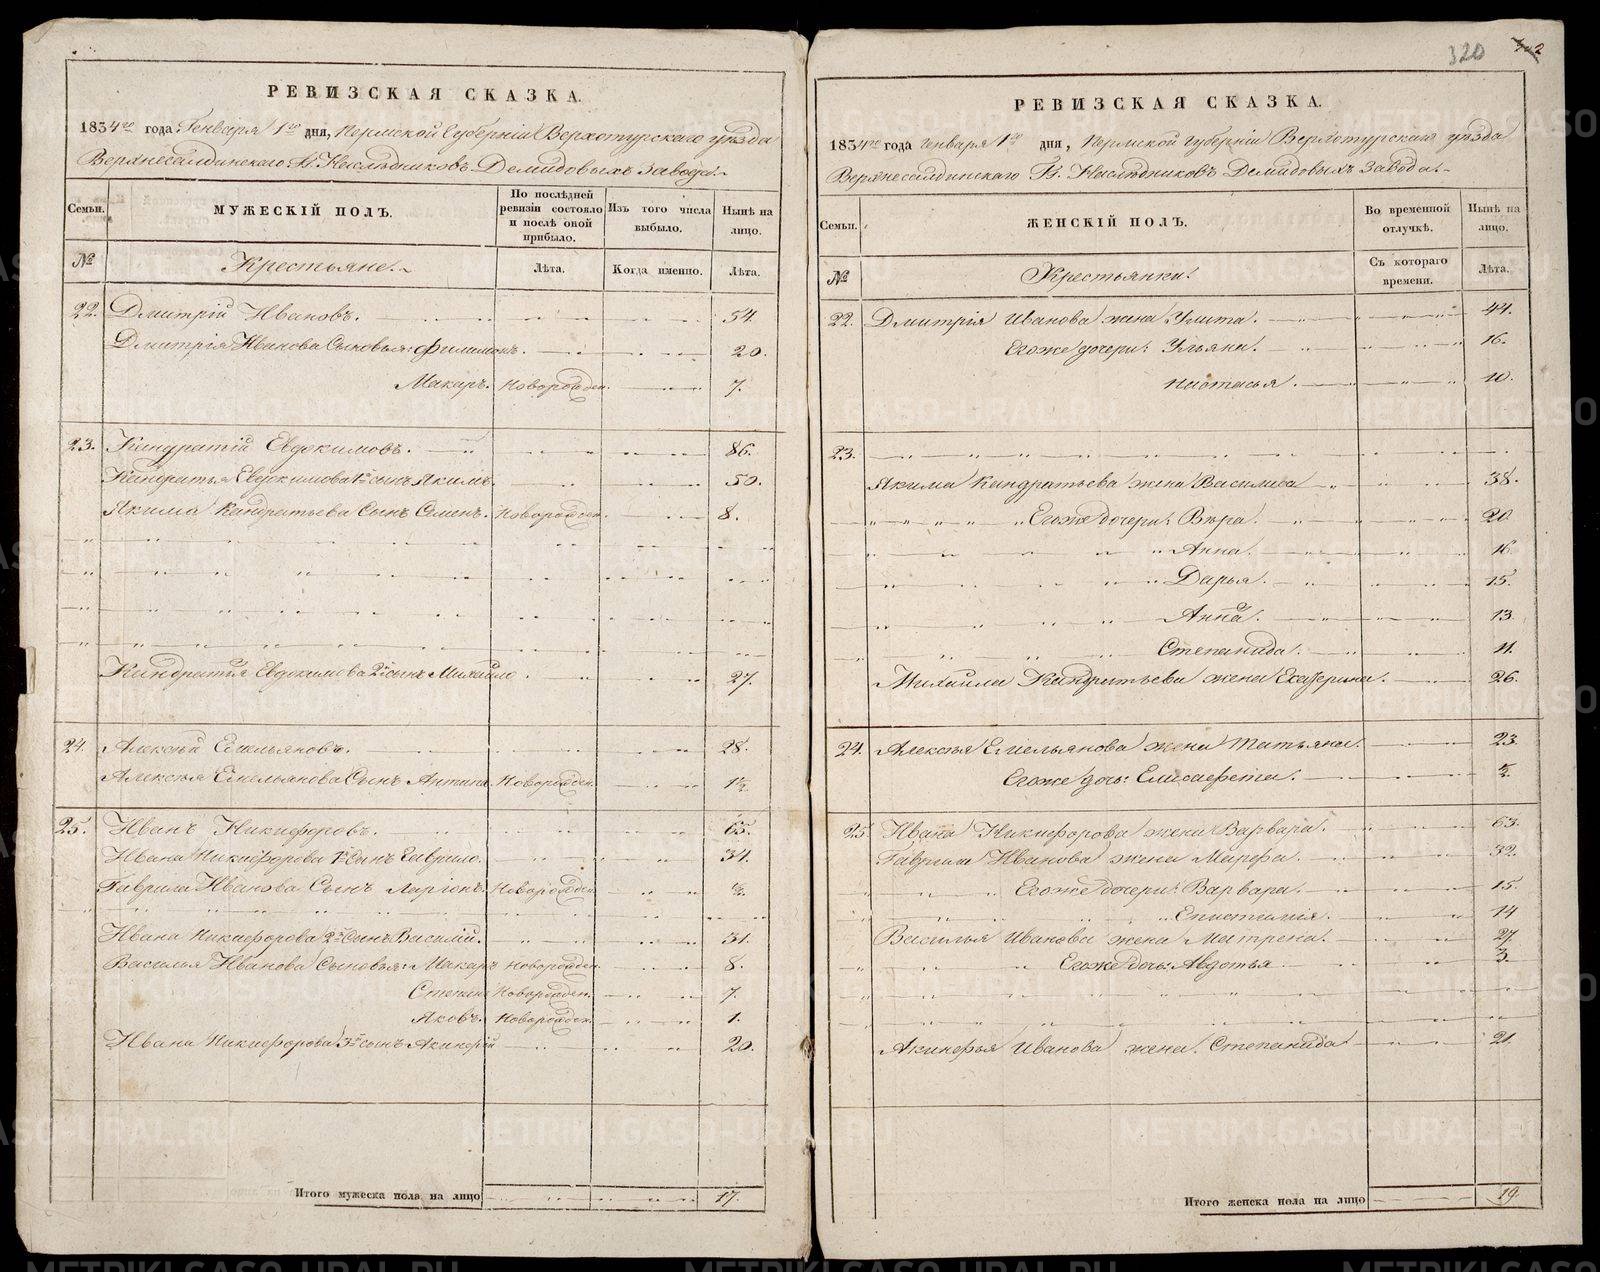 РЕВИЗСКАЯ СКАЗКА.
1834го года Генваря 1го дня, Пермской Губерніи Верхотурскаго уѣзда
Верхнесалдинскаго Гг. Наслѣдниковъ Демидовыхъ Завода.
Семьи. МУЖЕСКІЙ ПОЛЪ. По послѣдней ревизіи состояло и послѣ оной прибыло. Изъ того числа выбыло. Нынѣ на лицо.
№ Крестьяне. Лѣта. Когда именно. Лѣта.
22. Дмитрій Ивановъ. 54.
Дмитрія Иванова Сыновья: Филимонъ. 20.
Макаръ. Новорожден. 7.
23. Кандратій Евдокимовъ. 86.
Кандратья Евдокимова 1й сынъ Якимъ. 50.
Якима Кандратьева Сынъ Семенъ. Новорожден. 8.
Кандратья Евдокимова 2й сынъ Михайло 27.
24. Алексѣй Емельяновъ. 28.
Алексѣя Емельянова Сынъ Антипа. Новорожден. 1½.
25. Иванъ Никифоровъ. 65.
Ивана Никифорова 1й Сынъ Гаврило. 34.
Гаврила Иванова Сынъ Ларіонъ. Новорожден. ½.
Ивана Никифорова 2й Сынъ Василій. 31.
Василья Иванова Сыновья: Макаръ Новорожден. 8.
Степанъ Новорожден. 7.
Яковъ. Новорожден. 1.
Ивана Никифорова 3й сынъ Акинфій 20.
Итого мужеска пола на лицо 17.
320
РЕВИЗСКАЯ СКАЗКА.
1834го года Генваря 1го дня, Пермской Губерніи Верхотурскаго уѣзда
Верхнесалдинскаго Гг. Наслѣдниковъ Демидовыхъ Завода.
Семьи. ЖЕНСКІЙ ПОЛЪ. Во временной отлучкѣ. Нынѣ на лицо.
№ Крестьянки. Съ котораго времени. Лѣта.
22. Дмитрія Иванова жена Улита. 44.
Егоже дочери: Ульяна. 16.
Настасья. 10.
23.
Якима Кандратьева жена Василиса 38.
Егоже дочери: Вѣра. 20
Анна. 16.
Дарья. 15.
Анна. 13.
Степанида. 11.
Михайла Кандратьева жена Екатерина. 26.
24. Алексѣя Емельянова жена Татьяна. 23
Егоже дочь: Елисавета.
25 Ивана Никифорова жена Варвара. 63.
Гаврила Иванова жена Марфа. 32.
Егоже дочери: Варвара. 15.
Епистимія. 14
Василья Иванова жена Матрена. 27.
Егоже дочь: Авдотья 3.
Акинфья Иванова жена Степанида 21.
Итого женска пола на лицо 19.
METRIKI.GASO-URAL.RU